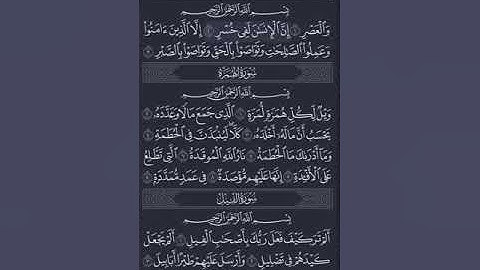 بِسْمِ ٱللَّهِ ٱلرَّحْمَٰنِ ٱلرَّحِيمِ
وَٱلْعَصْرِ ١ إِنَّ ٱلْإِنسَٰنَ لَفِى خُسْرٍ ٢ إِلَّا ٱلَّذِينَ ءَامَنُوا۟
وَعَمِلُوا۟ ٱلصَّٰلِحَٰتِ وَتَوَاصَوْا۟ بِٱلْحَقِّ وَتَوَاصَوْا۟ بِٱلصَّبْرِ ٣
سُورَةُ الهُمَزَةِ
بِسْمِ ٱللَّهِ ٱلرَّحْمَٰنِ ٱلرَّحِيمِ
وَيْلٌ لِّكُلِّ هُمَزَةٍ لُّمَزَةٍ ١ ٱلَّذِى جَمَعَ مَالًا وَعَدَّدَهُۥ ٢
يَحْسَبُ أَنَّ مَالَهُۥٓ أَخْلَدَهُۥ ٣ كَلَّا لَيُنۢبَذَنَّ فِى ٱلْحُطَمَةِ ٤
وَمَآ أَدْرَىٰكَ مَا ٱلْحُطَمَةُ ٥ نَارُ ٱللَّهِ ٱلْمُوقَدَةُ ٦ ٱلَّتِى تَطَّلِعُ
عَلَى ٱلْأَفْـِٔدَةِ ٧ إِنَّهَا عَلَيْهِم مُّؤْصَدَةٌ ٨ فِى عَمَدٍ مُّمَدَّدَةٍۭ ٩
سُورَةُ الفِيلِ
بِسْمِ ٱللَّهِ ٱلرَّحْمَٰنِ ٱلرَّحِيمِ
أَلَمْ تَرَ كَيْفَ فَعَلَ رَبُّكَ بِأَصْحَٰبِ ٱلْفِيلِ ١ أَلَمْ يَجْعَلْ
كَيْدَهُمْ فِى تَضْلِيلٍ ٢ وَأَرْسَلَ عَلَيْهِمْ طَيْرًا أَبَابِيلَ ٣